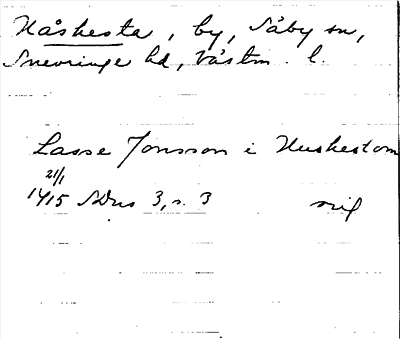 Nåshesta, by, Säby sn,
Snevringe hd, Västm. l.
Lasse Jonsson i Neskestom
21/1
1415 SDns 3, s. 3 sigl